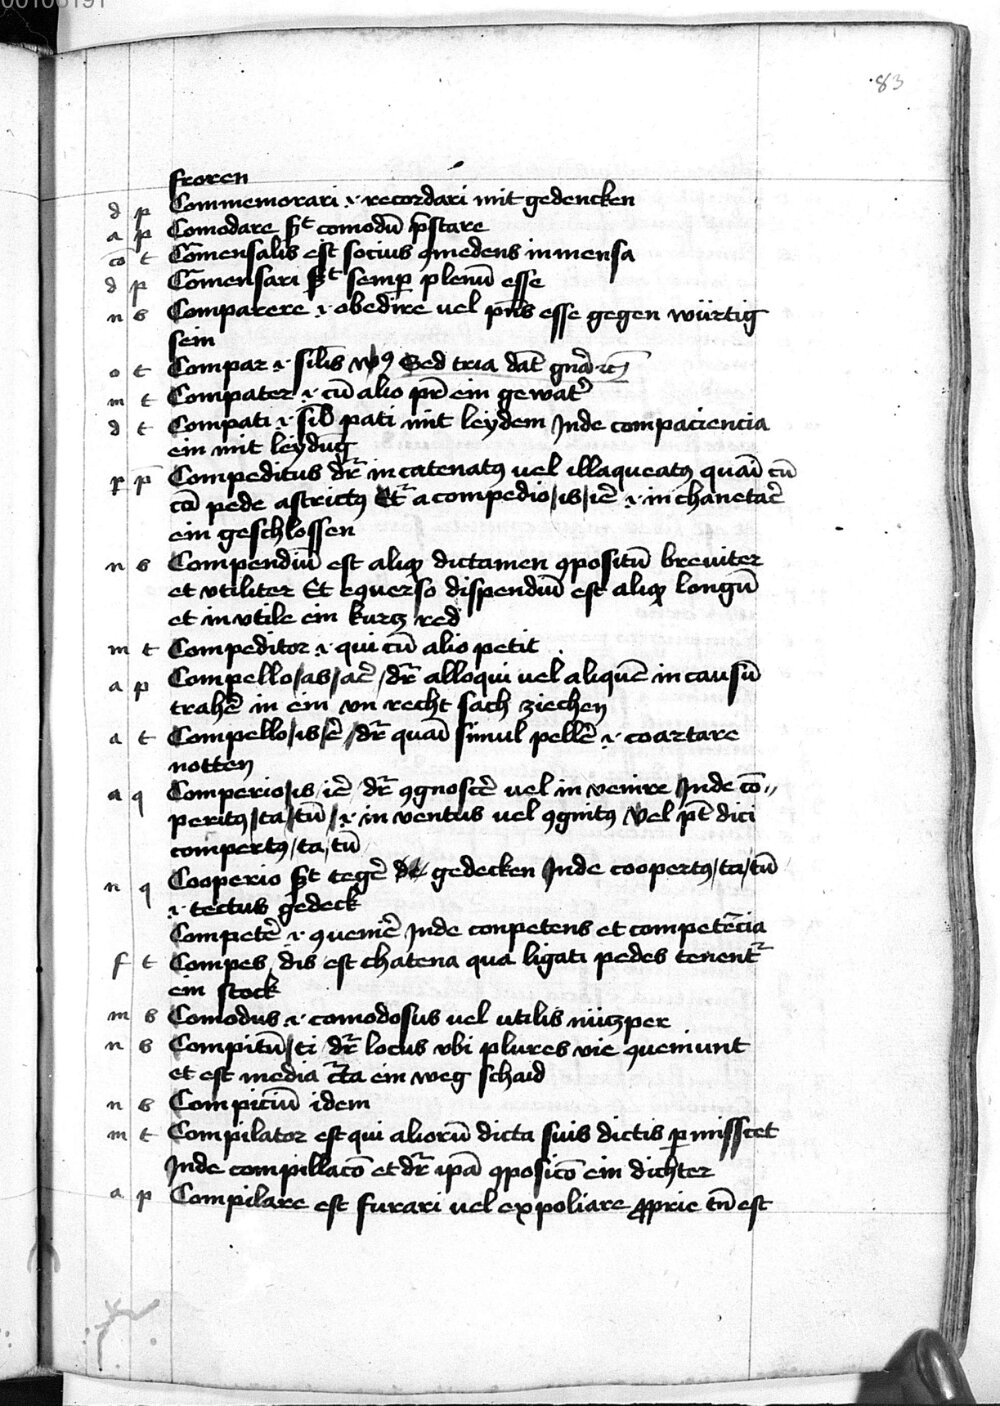 00106191
83
froren
d p Commemorari .i. recordari mit gedencken
a p Comodare s͛t comodū p̄stare
cō t Cōmensalis est socius ꝯmedens in mensa
d p Cōmensari s͛t semꝑ plenū esse
n s Comparere .i. obedire vel p̄ns esse gegen würtig
sein
o t Compar .i. silis Sed tria dat̄
m t Compater .i. cū alio pr̄ ein gewat͛
d t Compati .i. sil̄ pati mit leydem Inde compaciencia
ein mit leydūg
p p Compeditus dr̄ in catenatꝰ vel illaqueatꝰ quasi cū
cū pede astrictꝰ Et dr̄ a compedio/is/ie͛ .i. in chanetac͛
ein geschlossen
n s Compendiū est aliqͥ dictamen ꝯpositū breuiter
et vtiliter Et eꝯuerso dispendiū est aliqͥ longū
et in vtile ein kurcz red
m t Compeditor .i. qui cū alio petit
a p Compello/as/ac͛ /dr̄ alloqui vel aliquē in causū
trahe͛ in ein vn recht sach ziechen
a t Compello/is/e͛ /dr̄ quasi simul pelle͛ .i. coartare
notten
a q Comperio/is/ie͛ dr̄ ꝯgnosce͛ vel in venire Inde cō〃
peritꝰ/ta/tū/ .i. in ventus vel ꝯgnitꝰ Vel pt̄ dici
compertꝰ/ta/tū
n q Cooperio s͛t tege͛ gedecken Inde coopertꝰ/ta/tū
.i. tectus gedeck
Compete͛ .i. ꝯuenie͛ Inde conpetens et competēcia
f t Compes/dis est chatena qua ligati pedes tenent͛
ein stock
m s Comodus .i. comodosus vel vtilis nüczper
n s Compitū/ti dr̄ locus vbi plures vie ꝯueniunt
et est media c̄ta ein weg schaid
n s Compiciū idem
m t Compilator est qui aliorū dicta suis dictis ꝑmisscet
Inde compillacō et dr̄ ip̄a ꝯposicō ein dichter
a p Compilare est furari vel expoliare ꝓprie tn̄ est